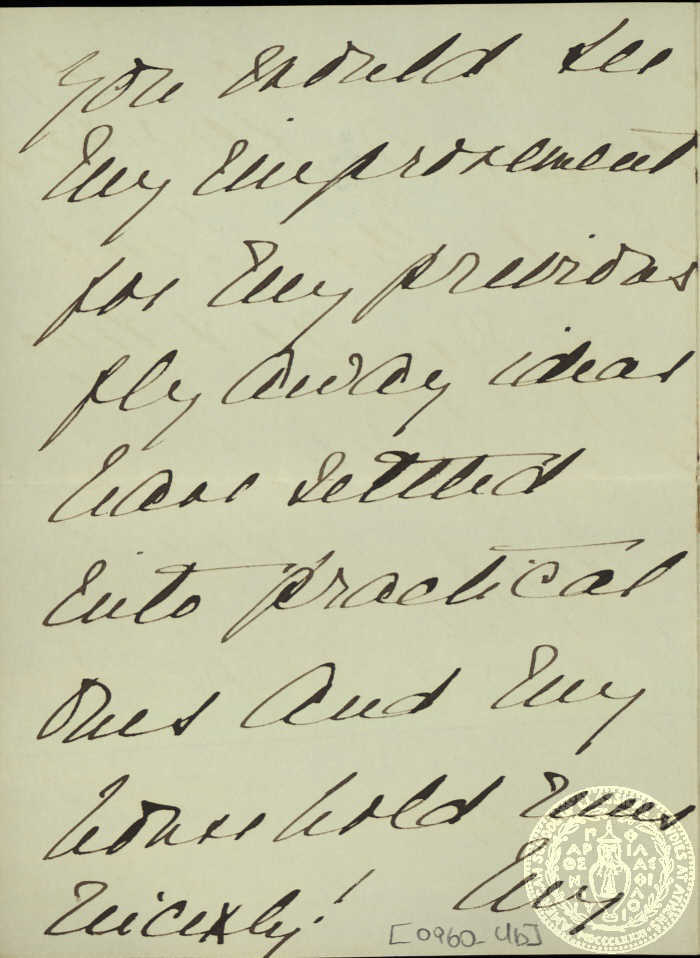 you would see
my improvement
for my previous
fly away ideas
have settled
into practical
ones and my
household runs
nicely! My
[0960-4b]
ΠΑΡΘΕΝΟΙ ΦΙΛΑΣ